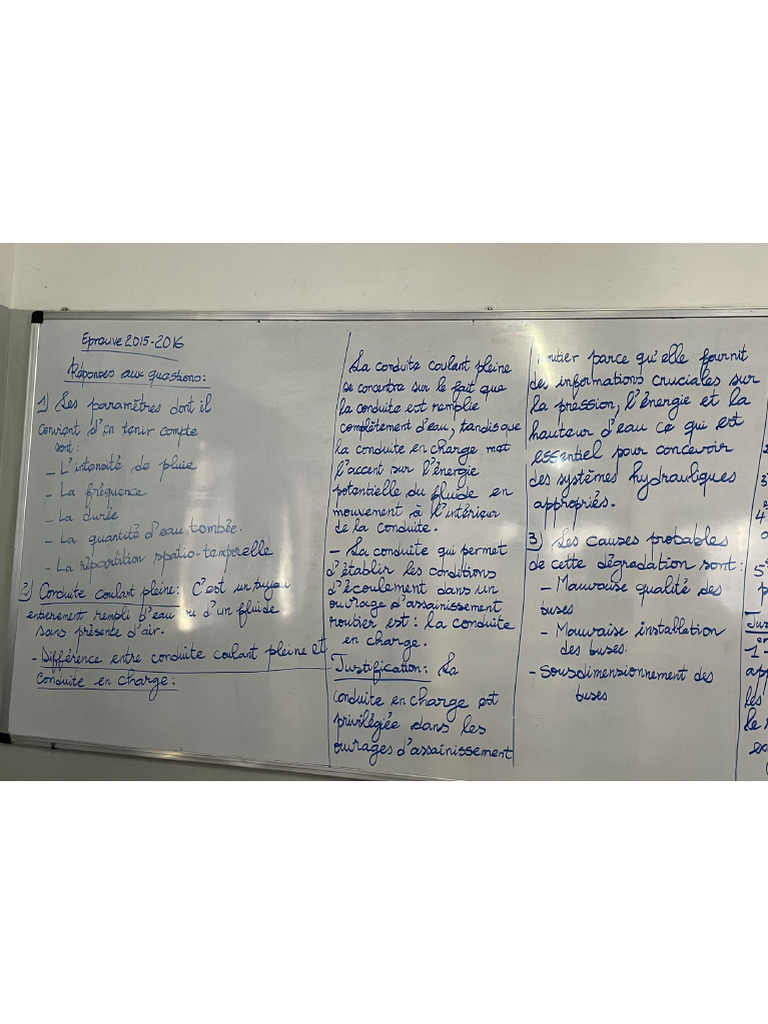 Eprouve 2015-2016
Réponses aux questions:
1) Les paramètres dont il
convient d'en tenir compte
sont:
- L'intensité de pluie
- La fréquence
- La durée
- La quantité d'eau tombée.
- La répartition spatio-temporelle
2) Conduite coulant pleine: C'est un tuyau
entièrement rempli d'eau ou d'un fluide
sans présente d'air.
- Différence entre conduite coulant pleine et
Conduite en charge:
La conduite coulant pleine
se concentre sur le fait que
la conduite est remplie
complètement d'eau, tandis que
la conduite en charge met
l'accent sur l'énergie
potentielle du fluide en
mouvement à l'intérieur
de la conduite.
- La conduite qui permet
d'établir les conditions
d'écoulement dans un
ouvrage d'assainissement
routier est: la conduite
en charge.
Justification: La
conduite en charge est
privilégiée dans les
ouvrages d'assainissement
routier parce qu'elle fournit
des informations cruciales sur
la pression, l'énergie et la
hauteur d'eau ce qui est
essentiel pour concevoir
des systèmes hydrauliques
appropriés.
3) Les causes probables
de cette dégradation sont:
- Mauvaise qualité des
buses
- Mauvaise installation
des buses.
- Sousdimensionnement des
buses